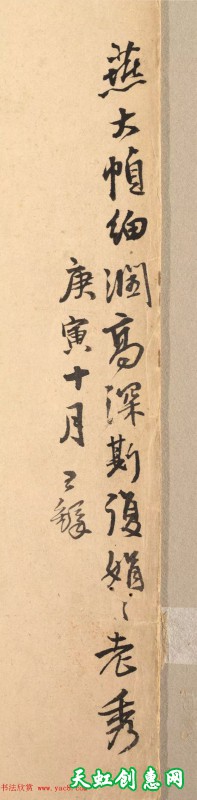 燕大幀細潤高深斯復娟〻老秀
庚寅十月王鐸
书法欣赏 www.yac8.com
天虹创意网